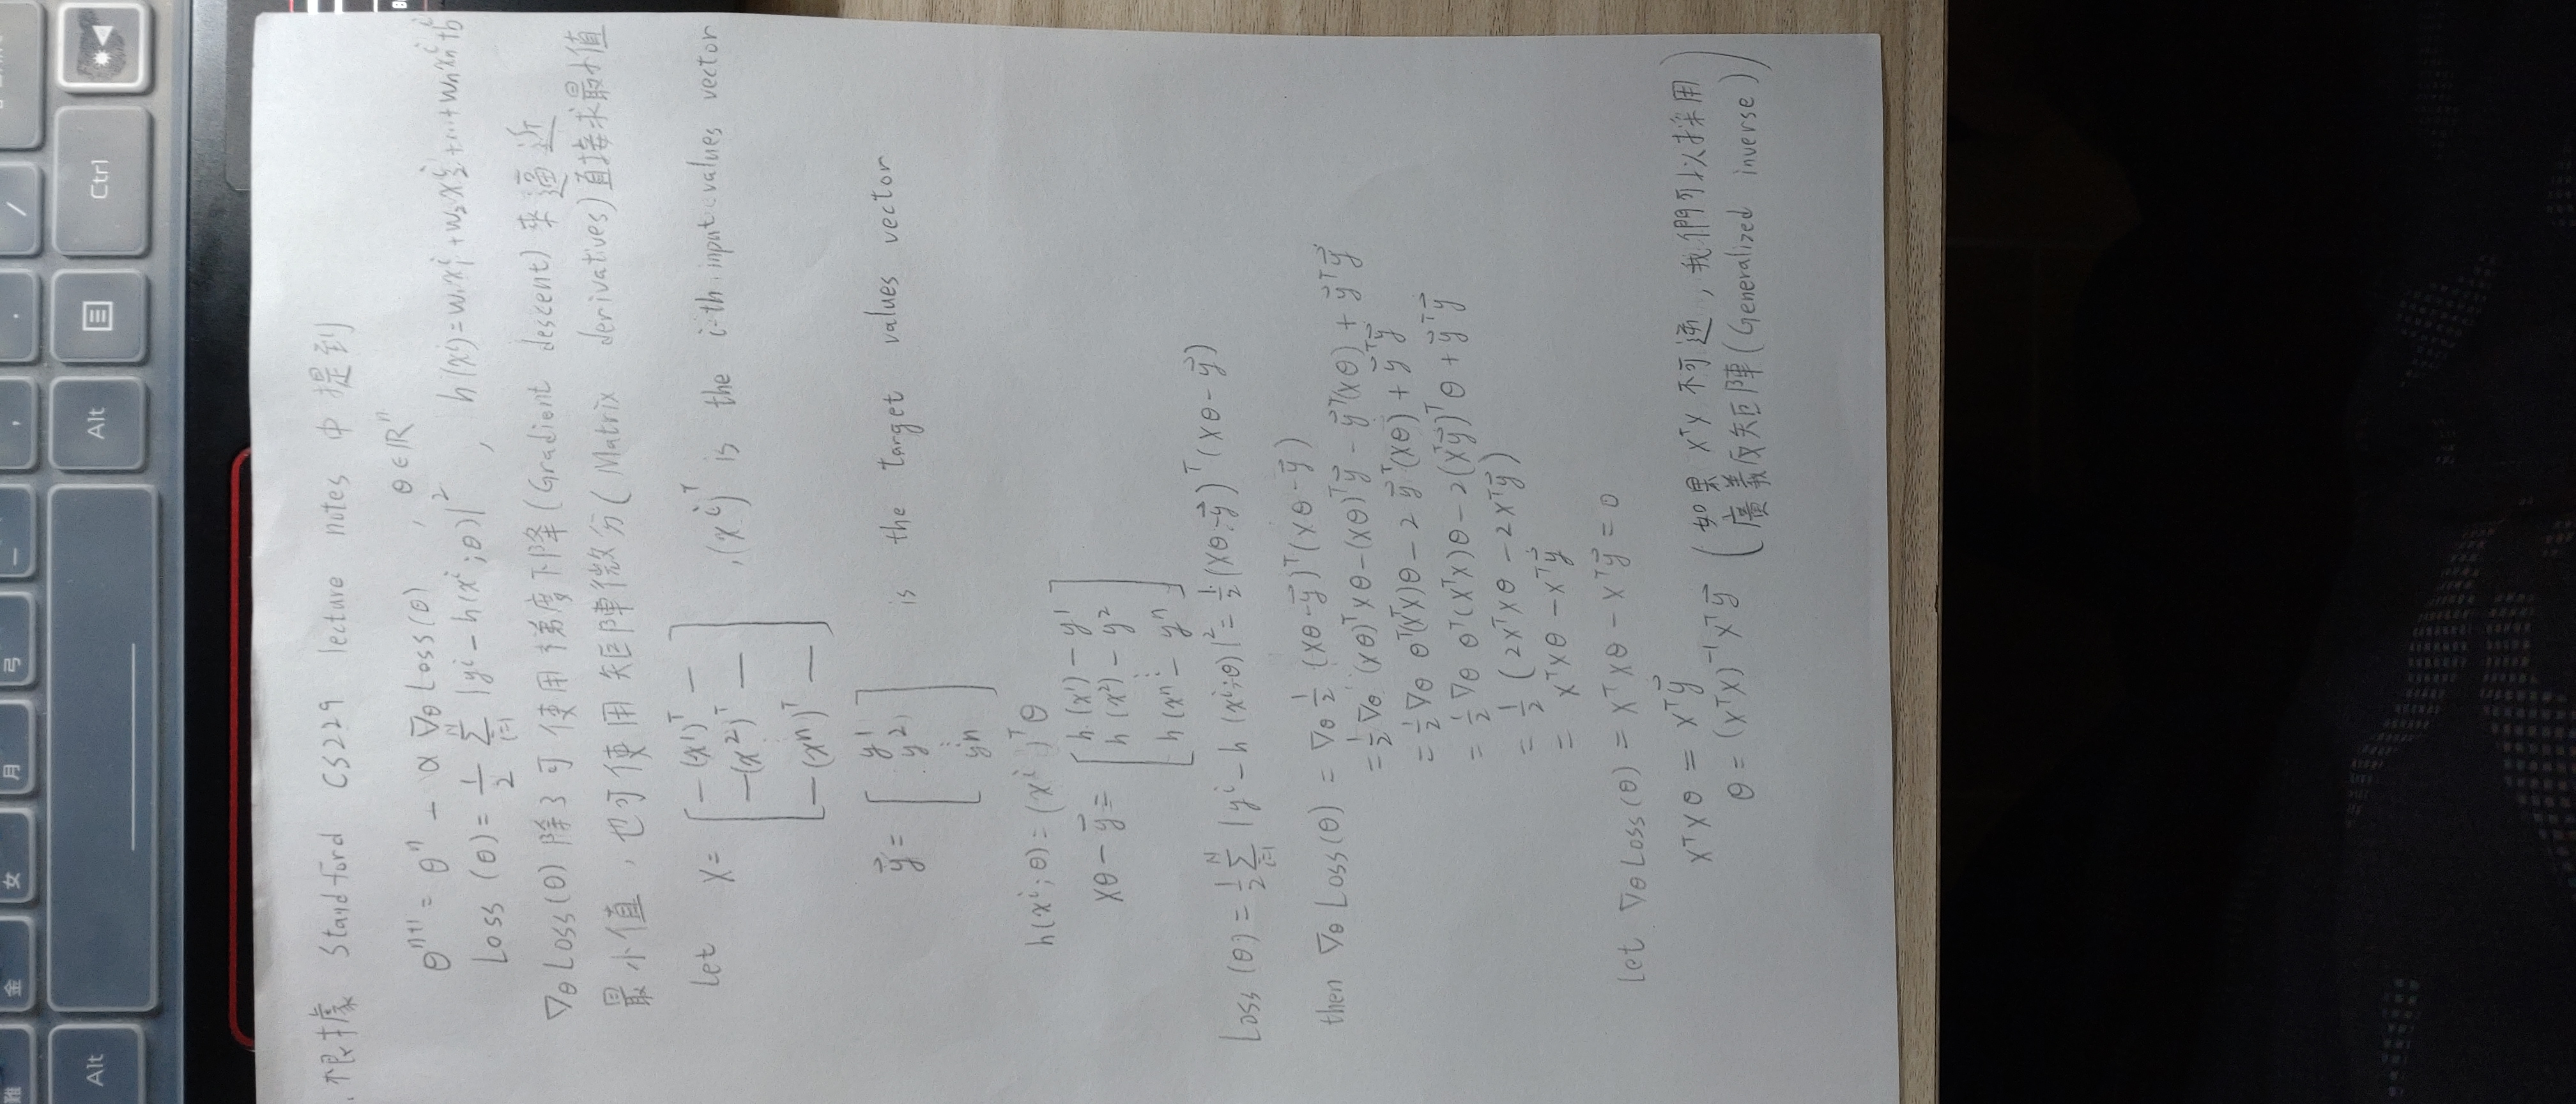 難 金 女 月 弓 一 , . /
Alt Alt Ctrl
根據 Standford CS229 lecture notes 中提到
θⁿ⁺¹ = θⁿ − α ∇θ Loss(θ) , θ ∈ ℝⁿ
Loss (θ) = 1/2 Σ_{i=1}^{N} |yⁱ − h(xⁱ;θ)|² , h(xⁱ) = w₁x₁ⁱ + w₂x₂ⁱ + ... + wₙxₙⁱ + bⁱ
∇θ Loss(θ) 除了可使用梯度下降(Gradient descent)來逼近
最小值,也可使用矩陣微分(Matrix derivatives)直接求最小值
let X = [ —(x¹)ᵀ— —(x²)ᵀ— ⋮ —(xⁿ)ᵀ— ] , (xⁱ)ᵀ is the i-th input values vector
y⃗ = [ y¹ y² ⋮ yⁿ ] is the target values vector
h(xⁱ;θ) = (xⁱ)ᵀθ
Xθ − y⃗ = [ h(x¹) − y¹ h(x²) − y² ⋮ h(xⁿ − yⁿ ]
Loss (θ) = 1/2 Σ_{i=1}^{N} |yⁱ − h(xⁱ;θ)|² = 1/2 (Xθ − y⃗)ᵀ(Xθ − y⃗)
then ∇θ Loss(θ) = ∇θ 1/2 (Xθ − y⃗)ᵀ(Xθ − y⃗)
= 1/2 ∇θ (Xθ)ᵀXθ − (Xθ)ᵀy⃗ − y⃗ᵀ(Xθ) + y⃗ᵀy⃗
= 1/2 ∇θ θᵀ(XᵀX)θ − 2 y⃗ᵀ(Xθ) + y⃗ᵀy⃗
= 1/2 ∇θ θᵀ(XᵀX)θ − 2(Xᵀy⃗)ᵀθ + y⃗ᵀy⃗
= 1/2 (2XᵀXθ − 2Xᵀy⃗)
= XᵀXθ − Xᵀy⃗
let ∇θ Loss(θ) = XᵀXθ − Xᵀy⃗ = 0
XᵀXθ = Xᵀy⃗
θ = (XᵀX)⁻¹Xᵀy⃗ (如果 XᵀX 不可逆,我們可以採用
廣義反矩陣(Generalized inverse))